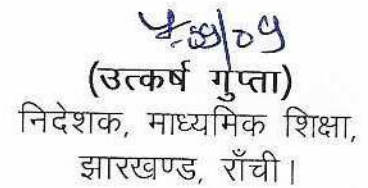 (उत्कर्ष गुप्ता)
निदेशक, माध्यमिक शिक्षा,
झारखण्ड, राँची।